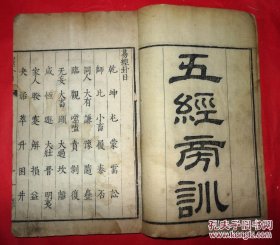 五經旁訓
易經卦目
乾 坤 屯 蒙 需 訟
師 比 小畜 履 泰 否
同人 大有 謙 豫 隨 蠱
臨 觀 噬嗑 賁 剝 復
无妄 大畜 頤 大過 坎 離
咸 恆 遯 大壯 晉 明夷
家人 睽 蹇 解 損 益
夬 姤 萃 升 困 井
孔夫子旧书网